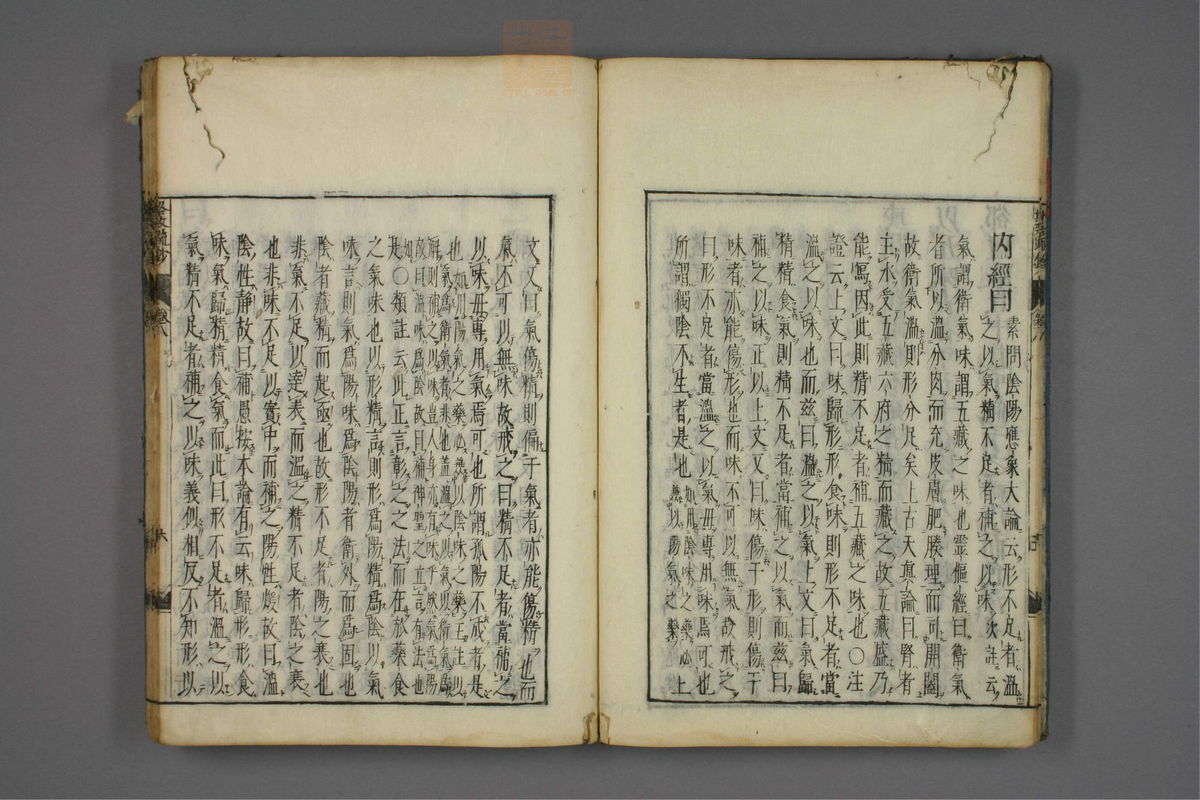 內經曰 素問陰陽應象大論云形不足者溫
之以氣精不足者補之以味次註云
氣謂衛氣味謂五藏之味也靈樞經曰衛氣
者所以溫分肉而充皮膚肥腠理而司開闔
故衛氣溫則形分足矣上古天真論曰腎者
主水受五藏六府之精而藏之故五藏盛乃
能寫因此則精不足者補五藏之味也○注
證云上文曰味歸形形食味則形不足者當
溫之以味也而茲曰溫之以氣上文曰氣歸
精精食氣則精不足者當補之以氣而茲曰
補之以味正以上文又曰味傷于形則傷于
味者亦能傷形也而味不可以無氣故戒之
曰形不足者當溫之以氣毋專用味焉可也
所謂獨陰不生者是也如用陰味之藥必上
幾以陽氣之藥
文又曰氣傷精則偏于氣者亦能傷精也而
氣不可以無味故戒之曰精不足者當補之
以味毋專用氣焉可也所謂孤陽不成者是
也如用陽氣之藥必幾以陰味之藥王註以
氣為衛氣者非也蓋溫之以氣以衛氣
解則補之以味豈人身亦有味乎味氣為陽
故曰溫味為陰故曰補神聖之立言有法也
如
是○類註云此正言彰之之法而在於藥食
之氣味也以形精言則形為陽精為陰以氣
味言則氣為陽味為陰陽者衛外而為固也
陰者藏精而起亟也故形不足者陽之衰也
非氣不足以達表而溫之精不足者陰之衰
也非味不足以實中而補之陽性煖故曰溫
陰性靜故曰補愚按本論有云味歸形形食
味氣歸精精食氣而此曰形不足者溫之以
氣精不足者補之以味義似相反不知形以